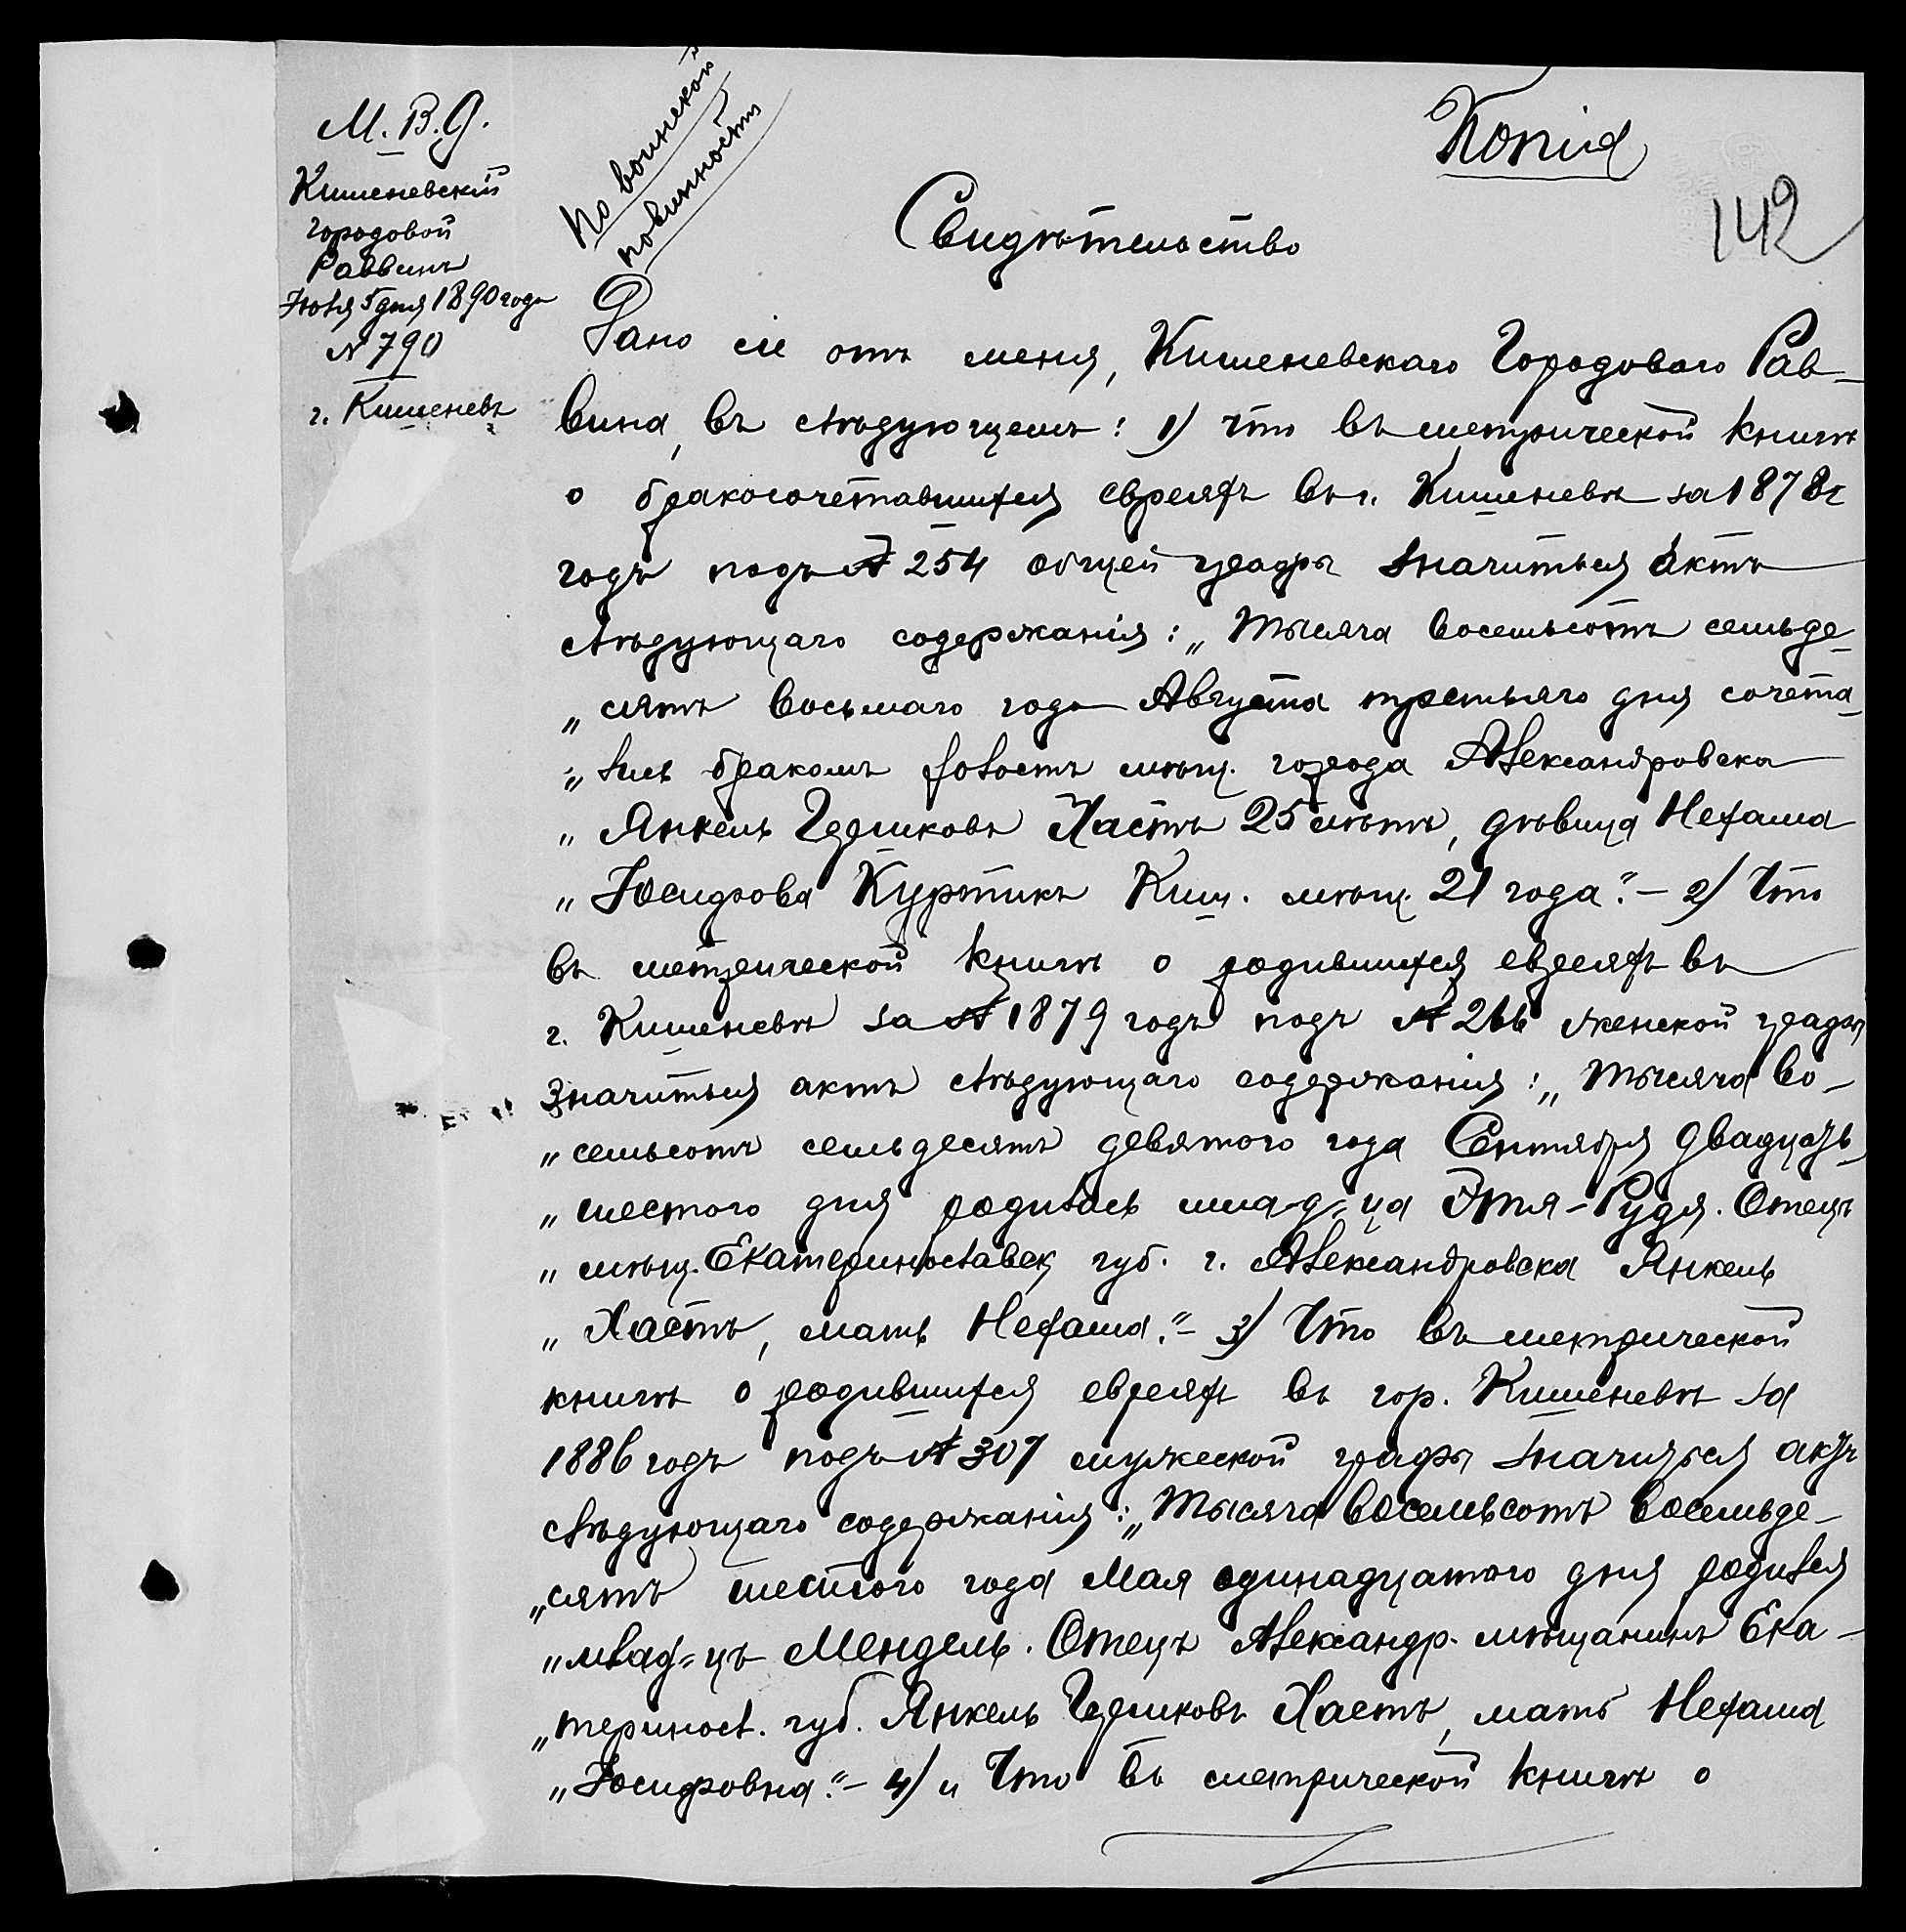 М.В.Д.
Кишеневскій
Городовой
Раввинъ
Іюля 5 дня 1890 года
№ 790
г. Кишеневъ
По воинской
повинности
Копія
142
Свидѣтельство
Дано сіе отъ меня, Кишеневскаго Городового Рав-
вина, въ слѣдующемъ: 1) что въ метрической книгѣ
о бракосочетавшихся евреяхъ въ г. Кишеневѣ за 1878
годъ подъ № 254 общей графы значиться актъ
слѣдующаго содержанія: „Тысяча восемьсотъ семьде-
„сятъ восьмаго года Августа третьяго дня сочета-
„лись бракомъ холостъ мѣщ. города Александровска
„Янкель Гершковъ Хастъ 25 лѣтъ, дѣвица Нехама
„Іосифова Куртикъ Киш. мѣщ. 21 года." – 2) Что
въ метрической книгѣ о родившихся евреяхъ въ
г. Кишеневѣ за № 1879 годъ подъ № 266 женской графы
значиться актъ слѣдующаго содержанія: „Тысяча во-
„семьсотъ семьдесятъ девятого года Сентября двадцать
„шестого дня родилась мла-д=ца Этя-Рудя. Отецъ
„мѣщ. Екатеринославск губ. г. Александровска Янкель
„Хастъ, мать Нехама." – 3) Что въ метрической
книгѣ о родившихся евреяхъ въ гор. Кишеневѣ за
1886 годъ подъ № 307 мужеской графы значиться актъ
слѣдующаго содержанія: „Тысяча восемьсотъ восемьде-
„сятъ шестого года Мая одинадцатого дня родился
„млад=цъ Мендель. Отецъ Александр. мѣщанинъ Ека-
„териносл. губ. Янкель Гершковъ Хастъ, мать Нехама
„Іосифовна." – 4) и Что въ метрической книгѣ о